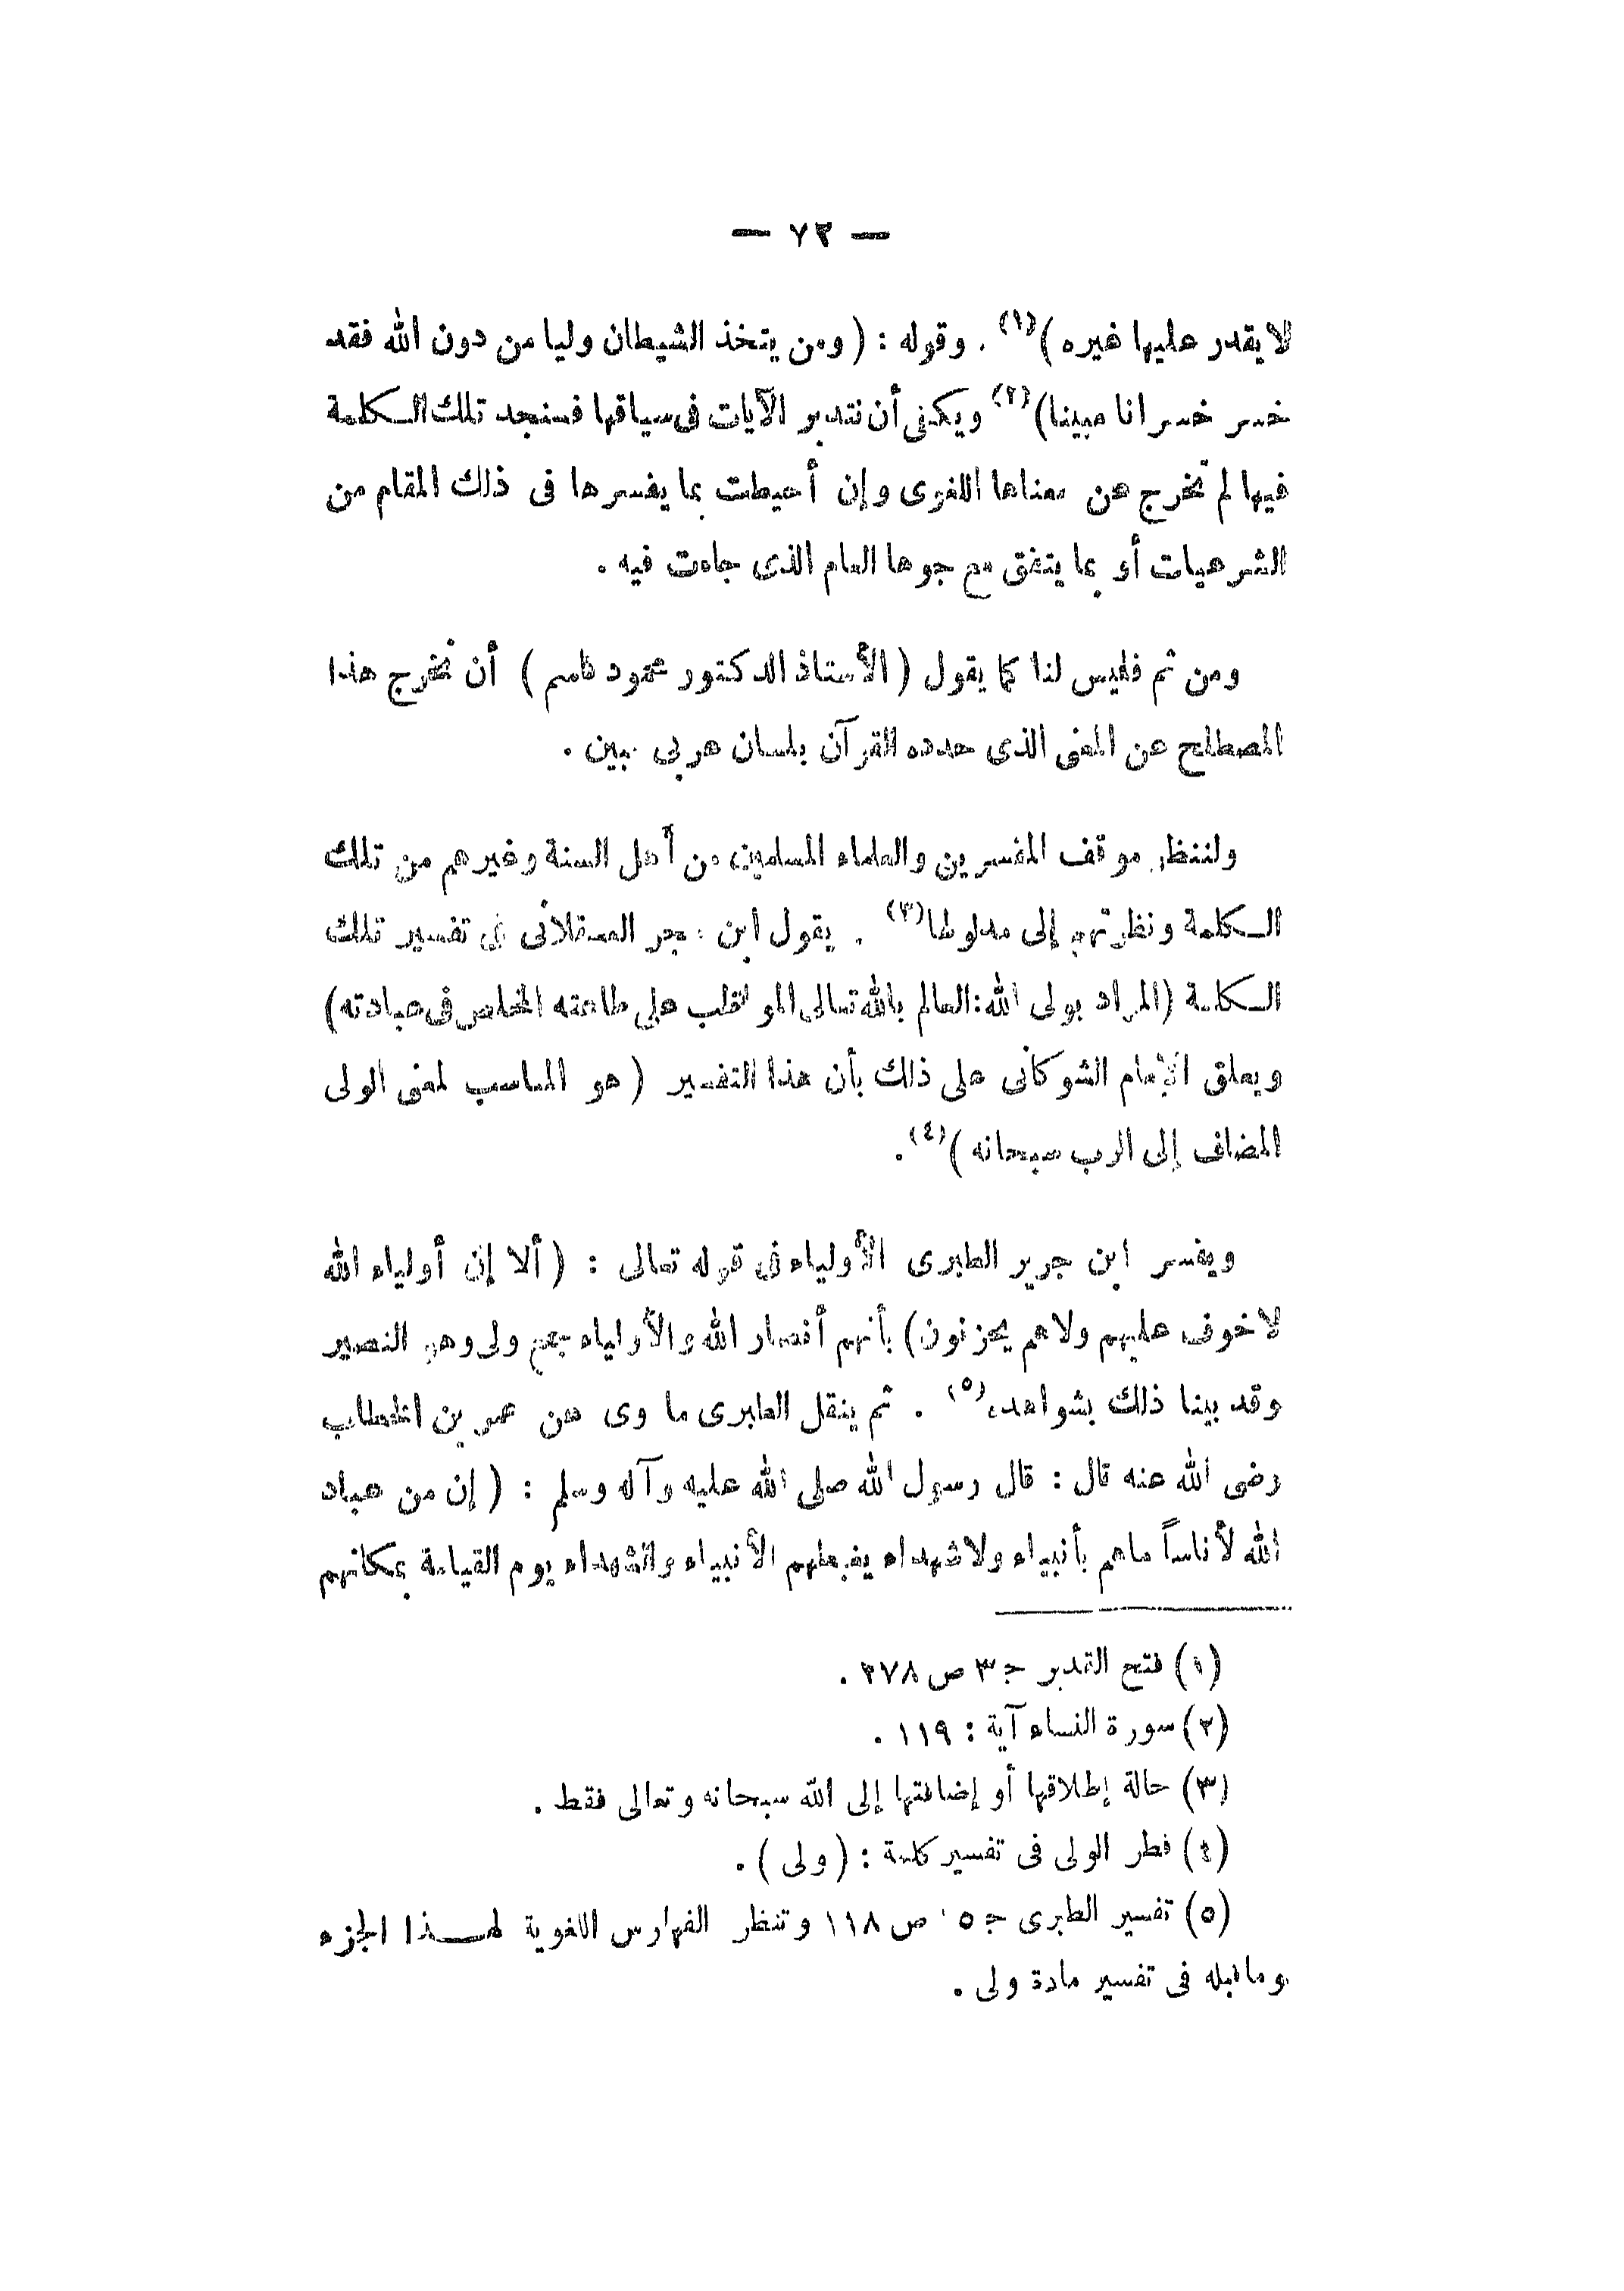 — ٧٣ —
لا يقدر عليها غيره )(١) . وقوله : ( ومن يتخذ الشيطان وليا من دون الله فقد
خسر خسرانا مبينا)(٢) ويكفى أن نتدبر الآيات فى سياقها فسنجد تلك الكلمة
فيها لم تخرج عن معناها اللغوى وإن أحيطت بما يفسرها فى ذلك المقام من
الشرعيات أو بما يتفق مع جوها العام الذى جاءت فيه .
ومن ثم فليس لنا كما يقول ( الأستاذ الدكتور محمود قاسم ) أن نخرج هذا
المصطلح عن المعنى الذى حدده القرآن بلسان عربى مبين .
ولننظر موقف المفسرين والعلماء المسلمين من أهل السنة وغيرهم من تلك
الكلمة ونظرتهم إلى مدلولها(٣) . يقول ابن حجر العسقلانى فى تفسير تلك
الكلمة (المراد بولى الله: العالم بالله تعالى المواظب على طاعته المخلص فى عبادته)
ويعلق الإمام الشوكانى على ذلك بأن هذا التفسير ( هو المناسب لمعنى الولى
المضاف إلى الرب سبحانه )(٤).
ويفسر ابن جرير الطبرى الأولياء فى قوله تعالى : ( ألا إن أولياء الله
لا خوف عليهم ولا هم يحزنون) بأنهم أنصار الله والأولياء جمع ولى وهو النصير
وقد بينا ذلك بشواهده(٥) . ثم ينقل الطبرى ما روى عن عمر بن الخطاب
رضى الله عنه قال : قال رسول الله صلى الله عليه وآله وسلم : ( إن من عباد
الله لأناساً ما هم بأنبياء ولا شهداء يغبطهم الأنبياء والشهداء يوم القيامة بمكانهم
(١) فتح القدير ج ٣ ص ٢٧٨ .
(٢) سورة النساء آية : ١١٩ .
(٣) حالة إطلاقها أو إضافتها إلى الله سبحانه وتعالى فقط .
(٤) قطر الولى فى تفسير كلمة : ( ولى ) .
(٥) تفسير الطبرى ج ١٥ ص ١١٨ وتنظر الفهارس اللغوية لهـذا الجزء
وما قبله فى تفسير مادة ولى .